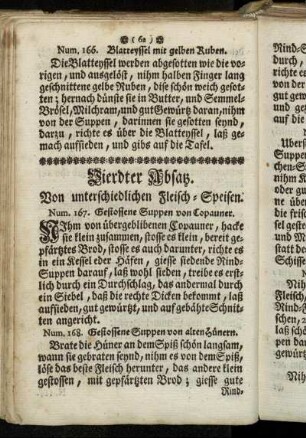 ( 62 )
Num. 166. Blatteyssel mit gelben Ruben.
Die Blatteyssel werden abgesotten wie die vo-
rigen, und ausgelöst, nihm halben Finger lang
geschnittene gelbe Ruben, dise schön weich gesot-
ten; hernach dünste sie in Butter, und Semmel-
Brösel, Milchram, und gut Gewürtz daran, nihm
von der Suppen, darinnen sie gesotten seynd,
darzu, richte es über die Blatteyssel, laß ge-
mach auffieden, und gibs auf die Tafel.
Vierdter Absatz.
Von unterschiedlichen Fleisch-Speisen.
Num. 167. Gestossene Suppen von Copauner.
Nihm von übergeblibenen Copauner, hacke
sie klein zusammen, stosse es klein, bereit ge-
pfärtztes Brod, stosse es auch darunter, richte es
in ein Kessel oder Häfen, giesse siedende Rind-
Suppen darauf, laß wohl sieden, treibe es erst-
lich durch ein Durchschlag, das andermal durch
ein Siebel, daß die rechte Dicken bekommt, laß
auffieden, gut gewürtzt, und auf gebähte Schnit-
ten angericht.
Num. 168. Gestossene Suppen von alten Hänern.
Brate die Hüner an dem Spiß schön langsam,
wann sie gebraten seynd, nihm es von dem Spiß,
löse das beste Fleisch herunter, das andere klein
gestossen, mit gepfärtzten Brod; giesse gute
Rind-